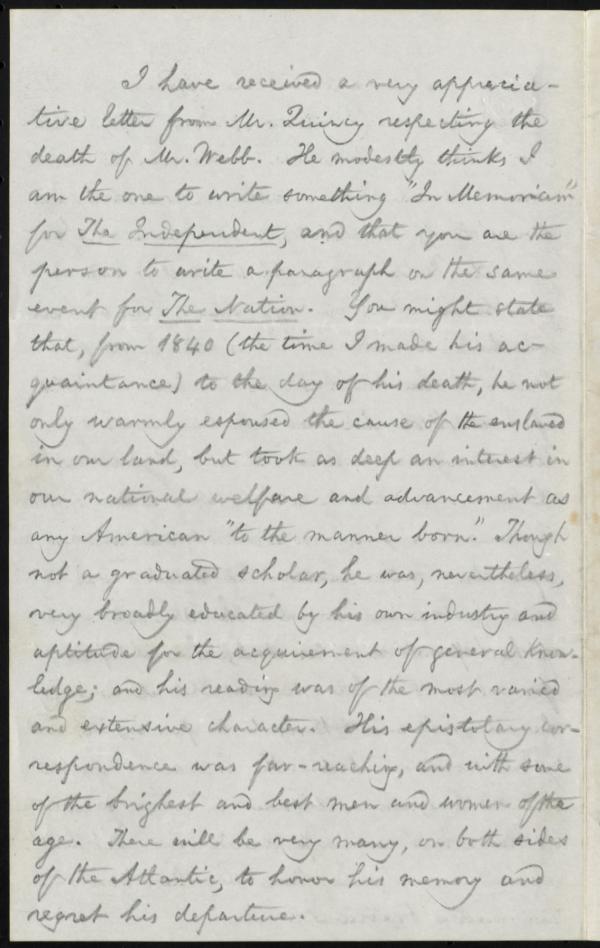 I have received a very apprecia-
tive letter from Mr. Quincy respecting the
death of Mr. Webb. He modestly thinks I
am the one to write something "In Memoriam"
for The Independent, and that you are the
person to write a paragraph on the same
event for The Nation. You might state
that, from 1840 (the time I made his ac-
quaintance) to the day of his death, he not
only warmly espoused the cause of the enslaved
in our land, but took as deep an interest in
our national welfare and advancement as
any American "to the manner born." Though
not a graduated scholar, he was, nevertheless,
very broadly educated by his own industry and
aptitude for the acquirement of general know-
ledge; and his reading was of the most varied
and extensive character. His epistolary cor-
respondence was far-reaching, and with some
of the brighest and best men and women of the
age. There will be very many, on both sides
of the Atlantic, to honor his memory and
regret his departure.